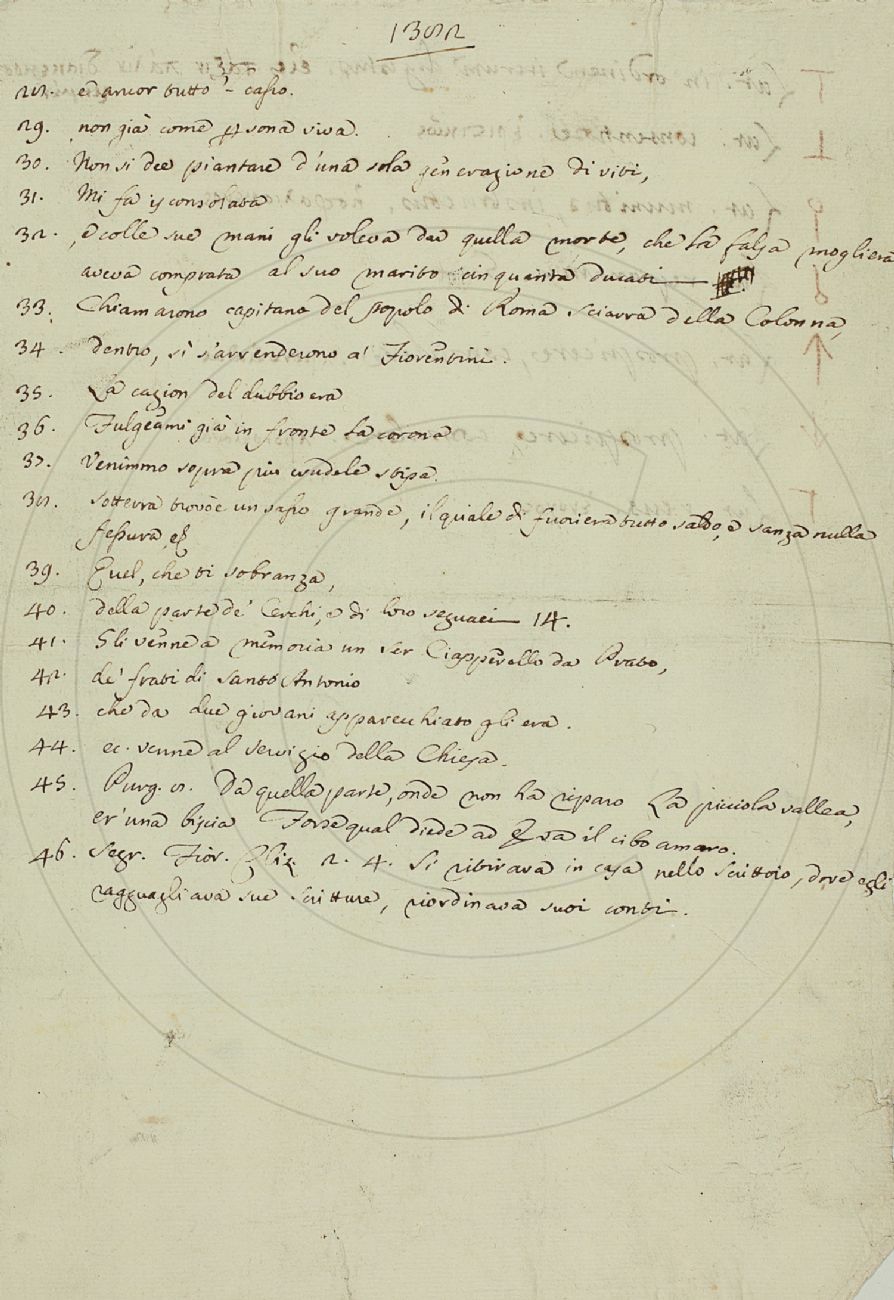 1382
28. ed ancor tutto 'l casso.
29. non già come psona viva.
30. Non si dee piantare d'una sola generazione di viti,
31. Mi fa isconsolata
32. e colle sue mani gli voleva dar quella morte, che la falsa mogliera
aveva comprata al suo marito cinquanta ducati
33. Chiamarono capitano del popolo di Roma Sciarra della Colonna,
34. dentro, si s'arrenderono a' Fiorentini.
35. La cagion del dubbio era
36. Fulgeami già in fronte la corona
37. Venimmo sopra più crudele stipa
38. sotterra trovoe un sasso grande, il quale di fuori era tutto saldo, e sanza nulla
fessura, e
39. Quel, che ti sobranza,
40. della parte de' Cerchi, e di loro seguaci 14.
41. Gli venne a memoria un ser Ciapperello da Prato,
42. de' frati di Santo Antonio
43. che da due giovani apparecchiato gli era.
44. ec. venne al servigio della Chiesa.
45. Purg. 8. Da quella parte, onde non ha riparo La picciola vallea,
er' una biscia Forse qual diede ad Eva il cibo amaro.
46. Segr. Fior. Cliz. 2. 4. Si ritirava in casa nello scrittoio, dove egli
ragguagliava sue scritture, riordinava suoi conti.